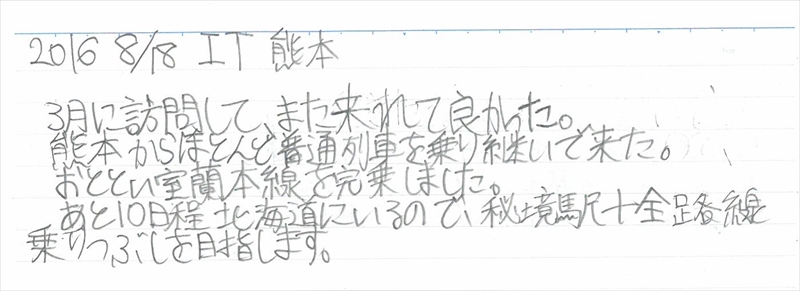 2016 8/18 IT 熊本
3月に訪問して、また来れて良かった。
熊本からほとんど普通列車を乗り継いで来た。
おととい室蘭本線を完乗しました。
あと10日程北海道にいるので、秘境駅+全路線
乗りつぶしを目指します。